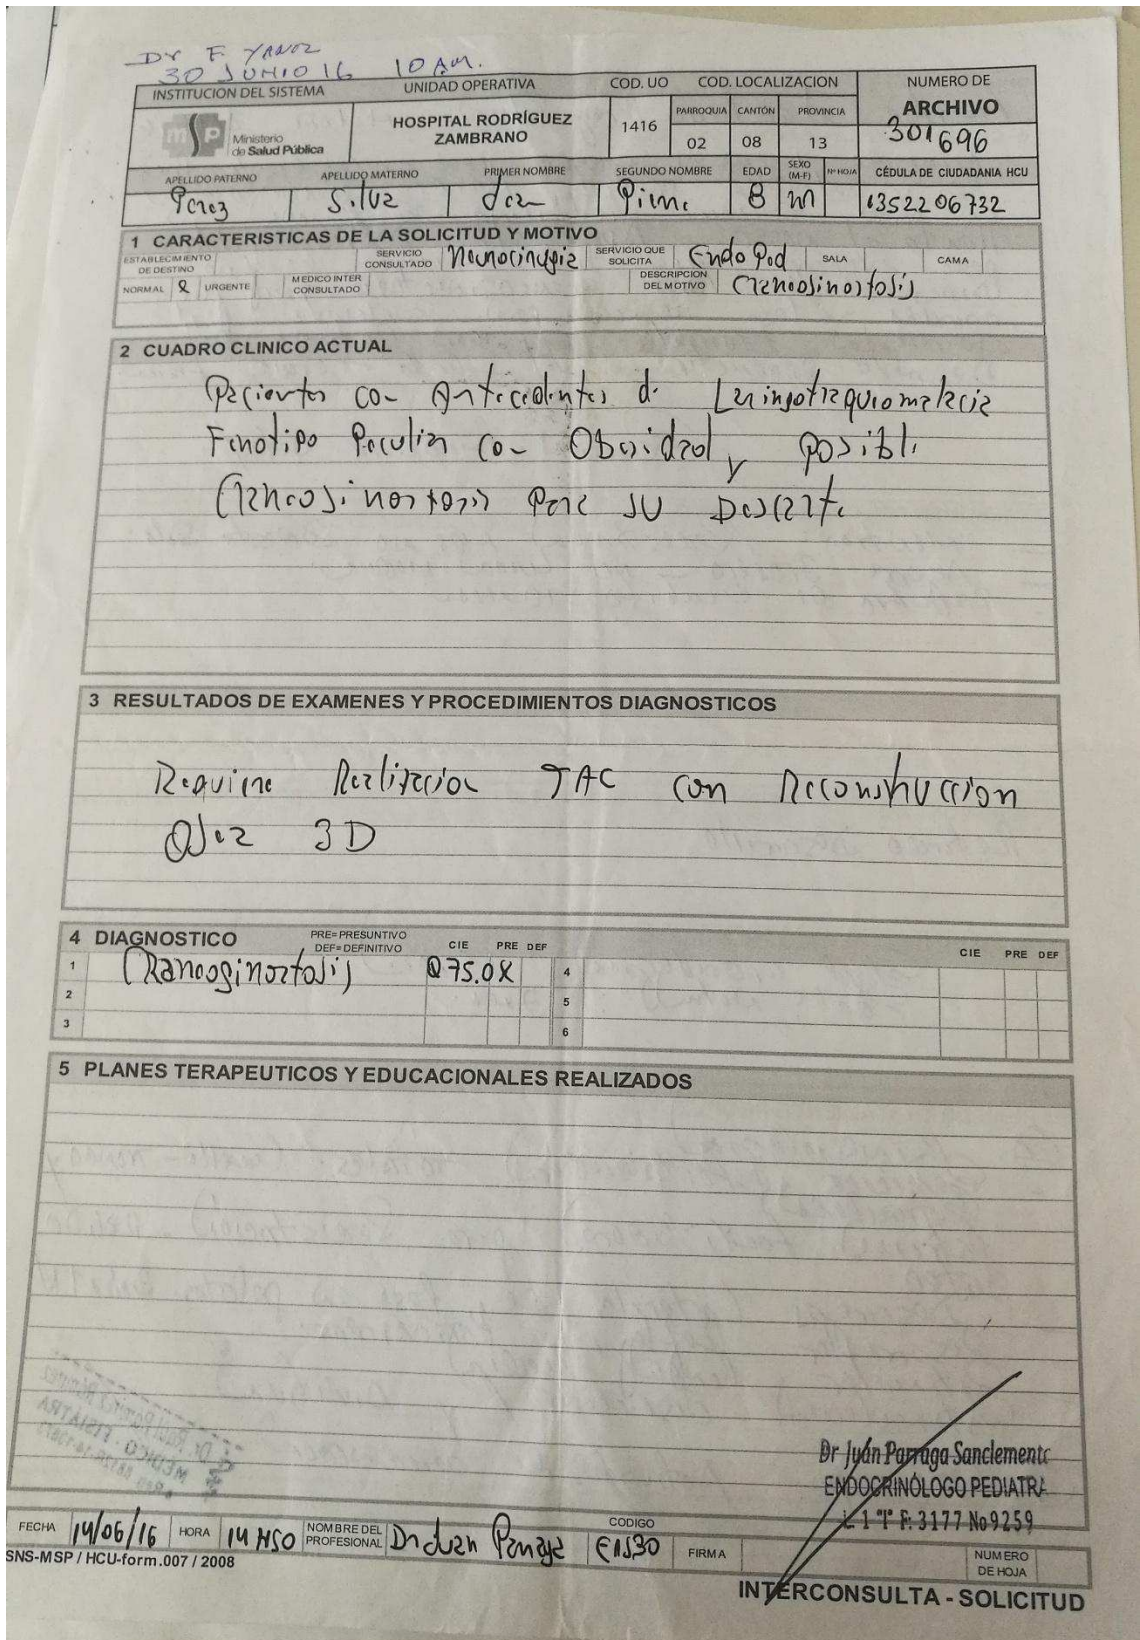 Dr F. YANOZ
30 JUNIO 16 10 AM.
INSTITUCION DEL SISTEMA UNIDAD OPERATIVA COD. UO COD. LOCALIZACION NUMERO DE
ARCHIVO
PARROQUIA CANTÓN PROVINCIA
msp Ministerio de Salud Pública HOSPITAL RODRÍGUEZ ZAMBRANO 1416 02 08 13 301696
APELLIDO PATERNO APELLIDO MATERNO PRIMER NOMBRE SEGUNDO NOMBRE EDAD SEXO (M-F) Nº HOJA CÉDULA DE CIUDADANIA HCU
Perez Silva 8 m 1352206732
1 CARACTERISTICAS DE LA SOLICITUD Y MOTIVO
ESTABLECIMIENTO DE DESTINO SERVICIO CONSULTADO Neurocirugia SERVICIO QUE SOLICITA Endo Ped SALA CAMA
NORMAL X URGENTE MEDICO INTER CONSULTADO DESCRIPCION DEL MOTIVO Craneosinostosis
2 CUADRO CLINICO ACTUAL
Paciente con Antecedentes de Laringotraqueomalacia
Fenotipo Peculiar con Obesidad y posible
Craneosinostosis Para su Descarte
3 RESULTADOS DE EXAMENES Y PROCEDIMIENTOS DIAGNOSTICOS
Requiere Realizacion TAC con Reconstruccion
Osea 3D
4 DIAGNOSTICO PRE= PRESUNTIVO DEF= DEFINITIVO CIE PRE DEF CIE PRE DEF
1 Craneosinostosis Q75.0 X 4
2 5
3 6
5 PLANES TERAPEUTICOS Y EDUCACIONALES REALIZADOS
Dr Juán Parraga Sanclemente
ENDOCRINÓLOGO PEDIATRA
L 1 "I" F: 3177 No 9259
FECHA 14/06/16 HORA 14 H50 NOMBRE DEL PROFESIONAL Dr Juan Parraga CODIGO E1530 FIRMA NUMERO DE HOJA
SNS-MSP / HCU-form.007 / 2008
INTERCONSULTA - SOLICITUD